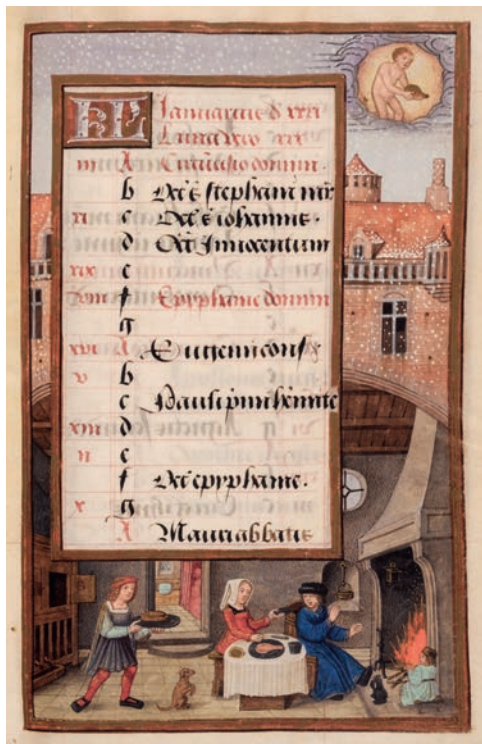 KL Januarius xxxi
Luna vero xxx
iii A domini.
b Oct s stephani mr
xi c Oct s iohannis.
d Oct Innocentium
xix e
viii f Epyphanie domini
g
xvi A Eugenii conf
v b
c Pauli primi heremite
xiii d
ii e
f Oct epyphanie.
x g
A Mauri abbatis